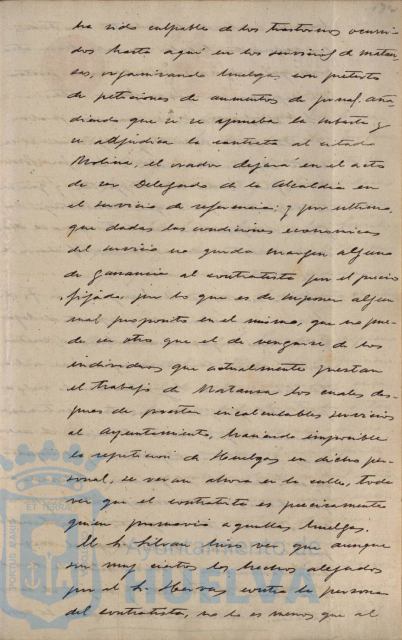 ha sido culpable de los trastornos ocurri-
dos hasta aquí en los servicios de matan-
zas, organizando huelgas con pretexto
de peticiones de aumentos de jornal, aña-
diendo que si se aprueba la subasta y
se adjudica la contrata al citado
Molina, el orador dejará en el acto
de ser Delegado de la Alcaldia en
el servicio de referencia; y por ultimo,
que dadas las condiciones economicas
del servicio no queda margen alguno
de ganancia al contratista por el precio
fijado, por lo que es de suponer algun
mal proposito en el mismo, que no pue-
de ser otro que el de vengarse de los
individuos que actualmente prestan
el trabajo de Matanza los cuales des-
pues de prestar incalculables servicios
al Ayuntamiento, haciendo imposible
la repeticion de Huelgas en dicho per-
sonal, se veran ahora en la calle, toda
vez que el contratista es precisamente
quien promovió aquellas huelgas.
El Sr. Silvan hizo ver que aunque
son muy ciertos los hechos alegados
por el Sr. Hervas contra la persona
del contratista, no lo es menos que al
PORTUS MARIS ET TERRAE
Ayuntamiento de
HUELVA